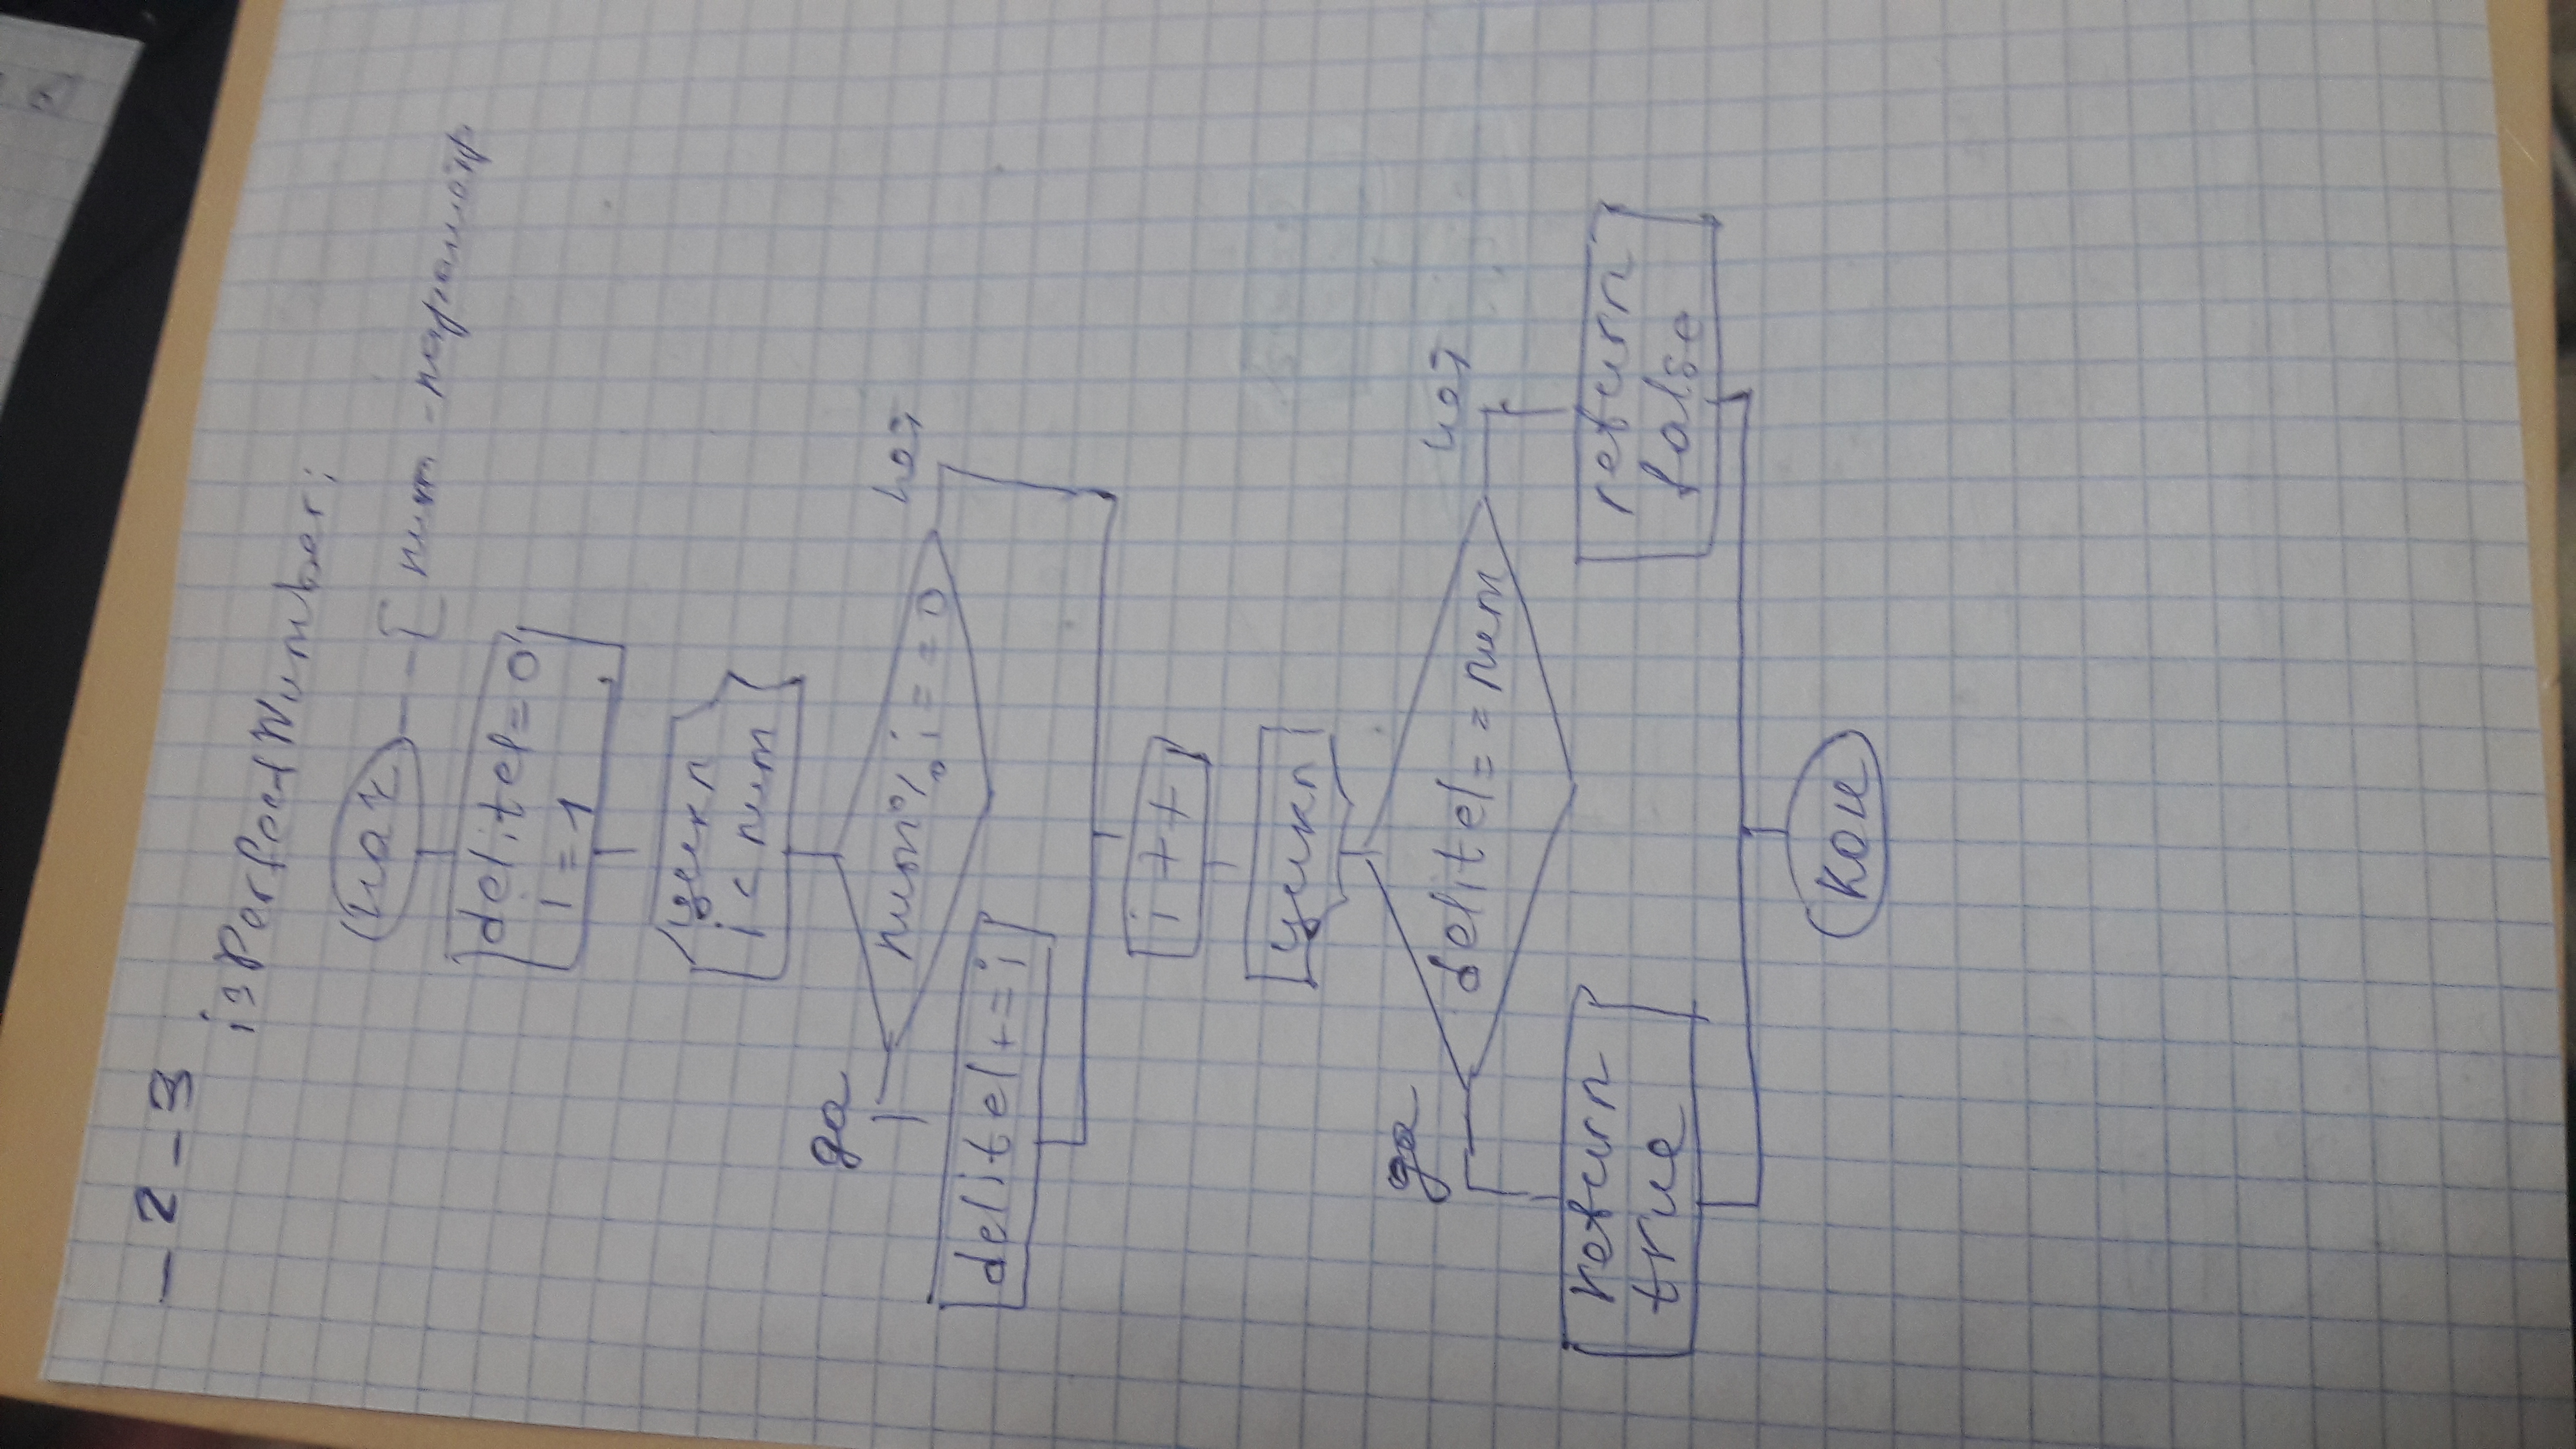 - 2 - 3
isPerfectNumber;
нач
num - параметр
delitel = 0
i = 1
цикл
i < num
да
num % i == 0
нет
delitel += i
i ++
цикл
да
delitel == num
нет
return
true
return
false
кон